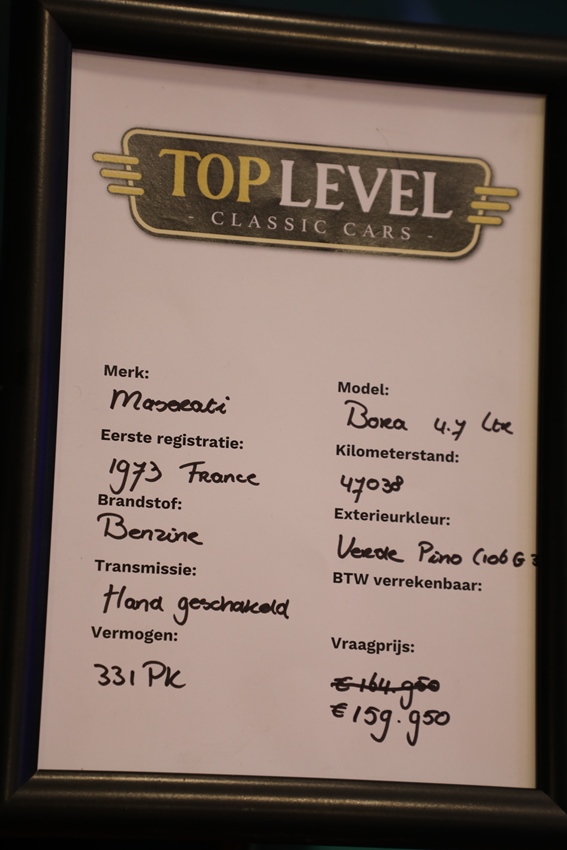 TOP LEVEL
- CLASSIC CARS -
Merk:
Maserati
Model:
Bora 4.7 Ltr
Eerste registratie:
1973 France
Kilometerstand:
47038
Brandstof:
Benzine
Exterieurkleur:
Verde Pino (106 G 3
Transmissie:
Hand geschakeld
BTW verrekenbaar:
Vermogen:
331 PK
Vraagprijs:
€ 164.950
€ 159.950